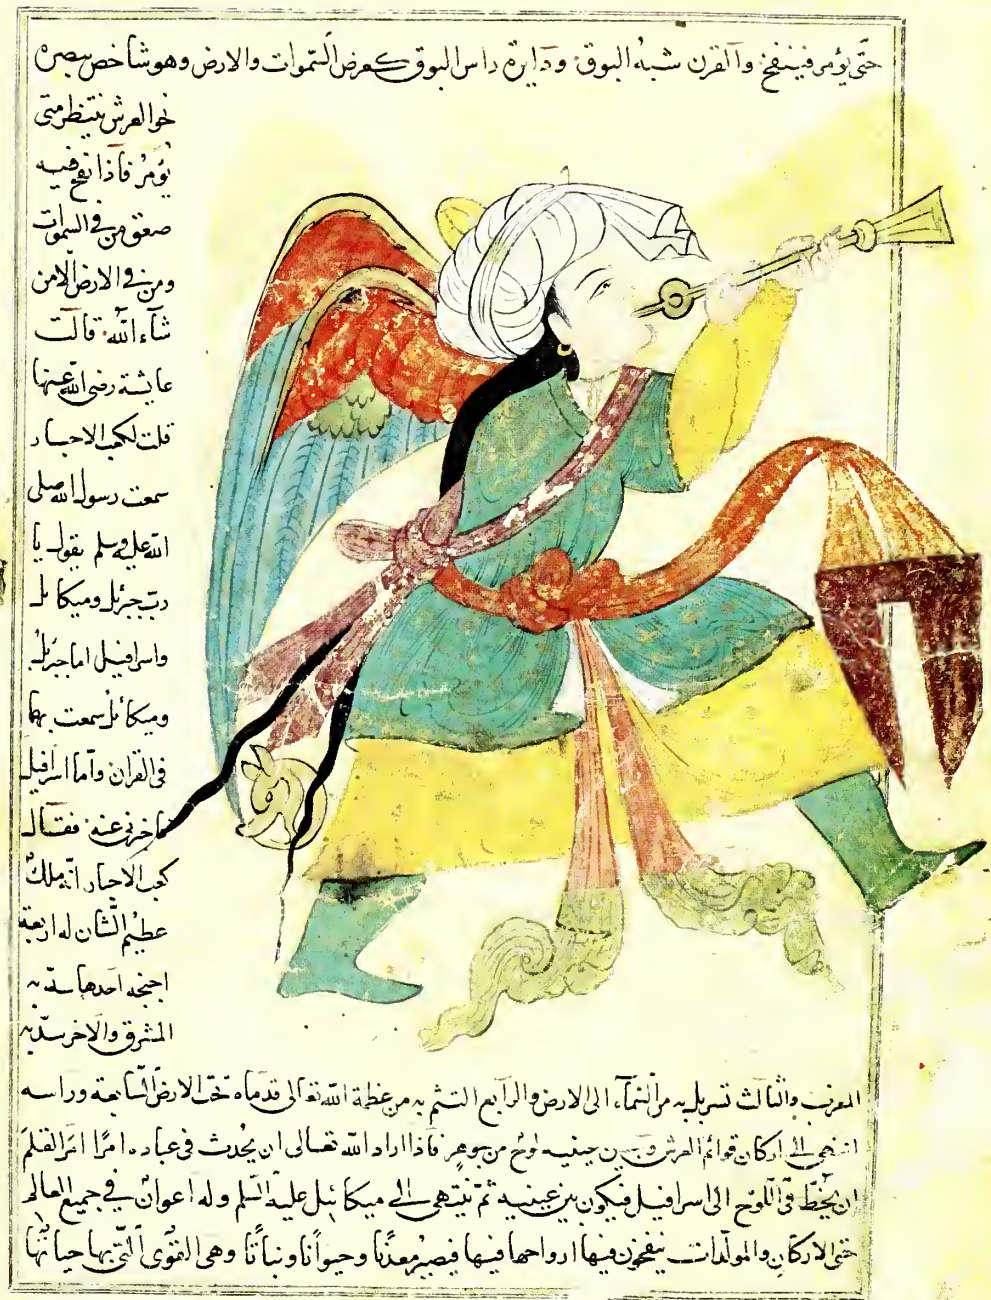 حتّى يؤمر فينفخ والقرن شبه البوق ودايرة راس البوق كعرض السّموات والارض وهو شاخص بصره
نحو العرش ينتظر متى
يؤمر فاذا نفخ فيه
صعق من في السموات
ومن في الارض الّا من
شآء الله قالت
عايشة رضى الله عنها
قلت لكعب الاحبار
سمعت رسول الله صلى
الله عليه وسلم يقول يا
ربّ جبرئل وميكائل
واسرافيل اما جبرئل
وميكائل سمعت بهما
فى القران وامّا اسرافيل
فاخبرنى عنه فقال
كعب الاحبار انّه ملك
عظيم الشّان له اربعة
اجنحة احدها سدّ به
المشرق والاخر سدّ به
المغرب والثالث تسربل به من السّمآء الى الارض والرابع التثم به من عظمة الله تعالى قدماه تحت الارض السّابعة وراسه
انتهى الى اركان قوائم العرش وبين عينيه لوح من جوهر فاذا اراد الله تعالى ان يحدث فى عباده امرًا امر القلم
ان يخطّ فى اللوح الى اسرافيل فيكون بين عينيه ثمّ ينتهى الى ميكائيل عليه السّلم وله اعوان في جميع العالم
حتى الاركان والمولّدات ينفخون فيها ارواحها فيها فيصير معدنًا وحيوانًا ونباتًا وهى القوى الّتى بها حياتها